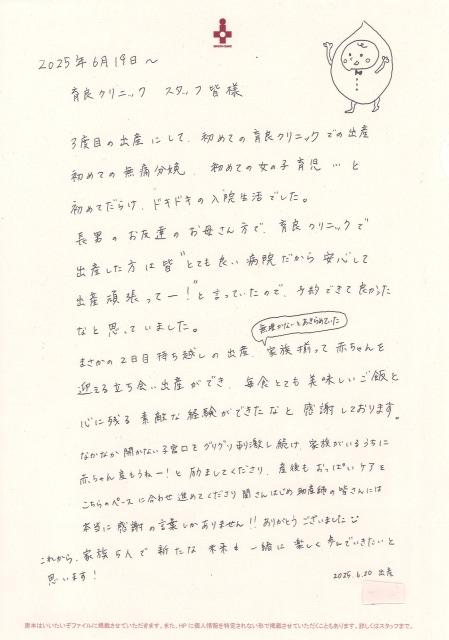 2025年6月19日〜
育良クリニック　スタッフ皆様
3度目の出産にして、初めての育良クリニックでの出産
初めての無痛分娩、初めての女の子育児…と
初めてだらけ、ドキドキの入院生活でした。
長男のお友達のお母さん方で、育良クリニックで
出産した方は皆"とても良い病院だから安心して
出産頑張ってー!"と言っていたので、予約できて良かった
なと思っていました。
無理かなぁとあきらめていた
まさかの2日目持ち越しの出産、家族揃って赤ちゃんを
迎える立ち会い出産ができ、毎食とても美味しいご飯と
心に残る素敵な経験ができたなと感謝しております。
なかなか開かない子宮口をグリグリ刺激し続け、家族がいるうちに
赤ちゃん産もうねー!と励ましてくださり、産後もおっぱいケアを
こちらのペースに合わせ進めてくださり関さんはじめ助産師の皆さんには
本当に感謝の言葉しかありません!!ありがとうございました
これから、家族5人で新たな未来も一緒に楽しく歩んでいきたいと
思います!
2025.6.20 出産
原本はいいたいぞファイルに掲載させていただきます。また、HPに個人情報を特定されない形で掲載させていただくこともあります。詳しくはスタッフまで。